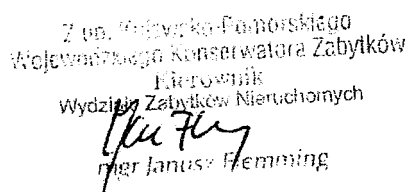 Z up. Kujawsko-Pomorskiego
Wojewódzkiego Konserwatora Zabytków
Kierownik
Wydziału Zabytków Nieruchomych
mgr Janusz Flemming